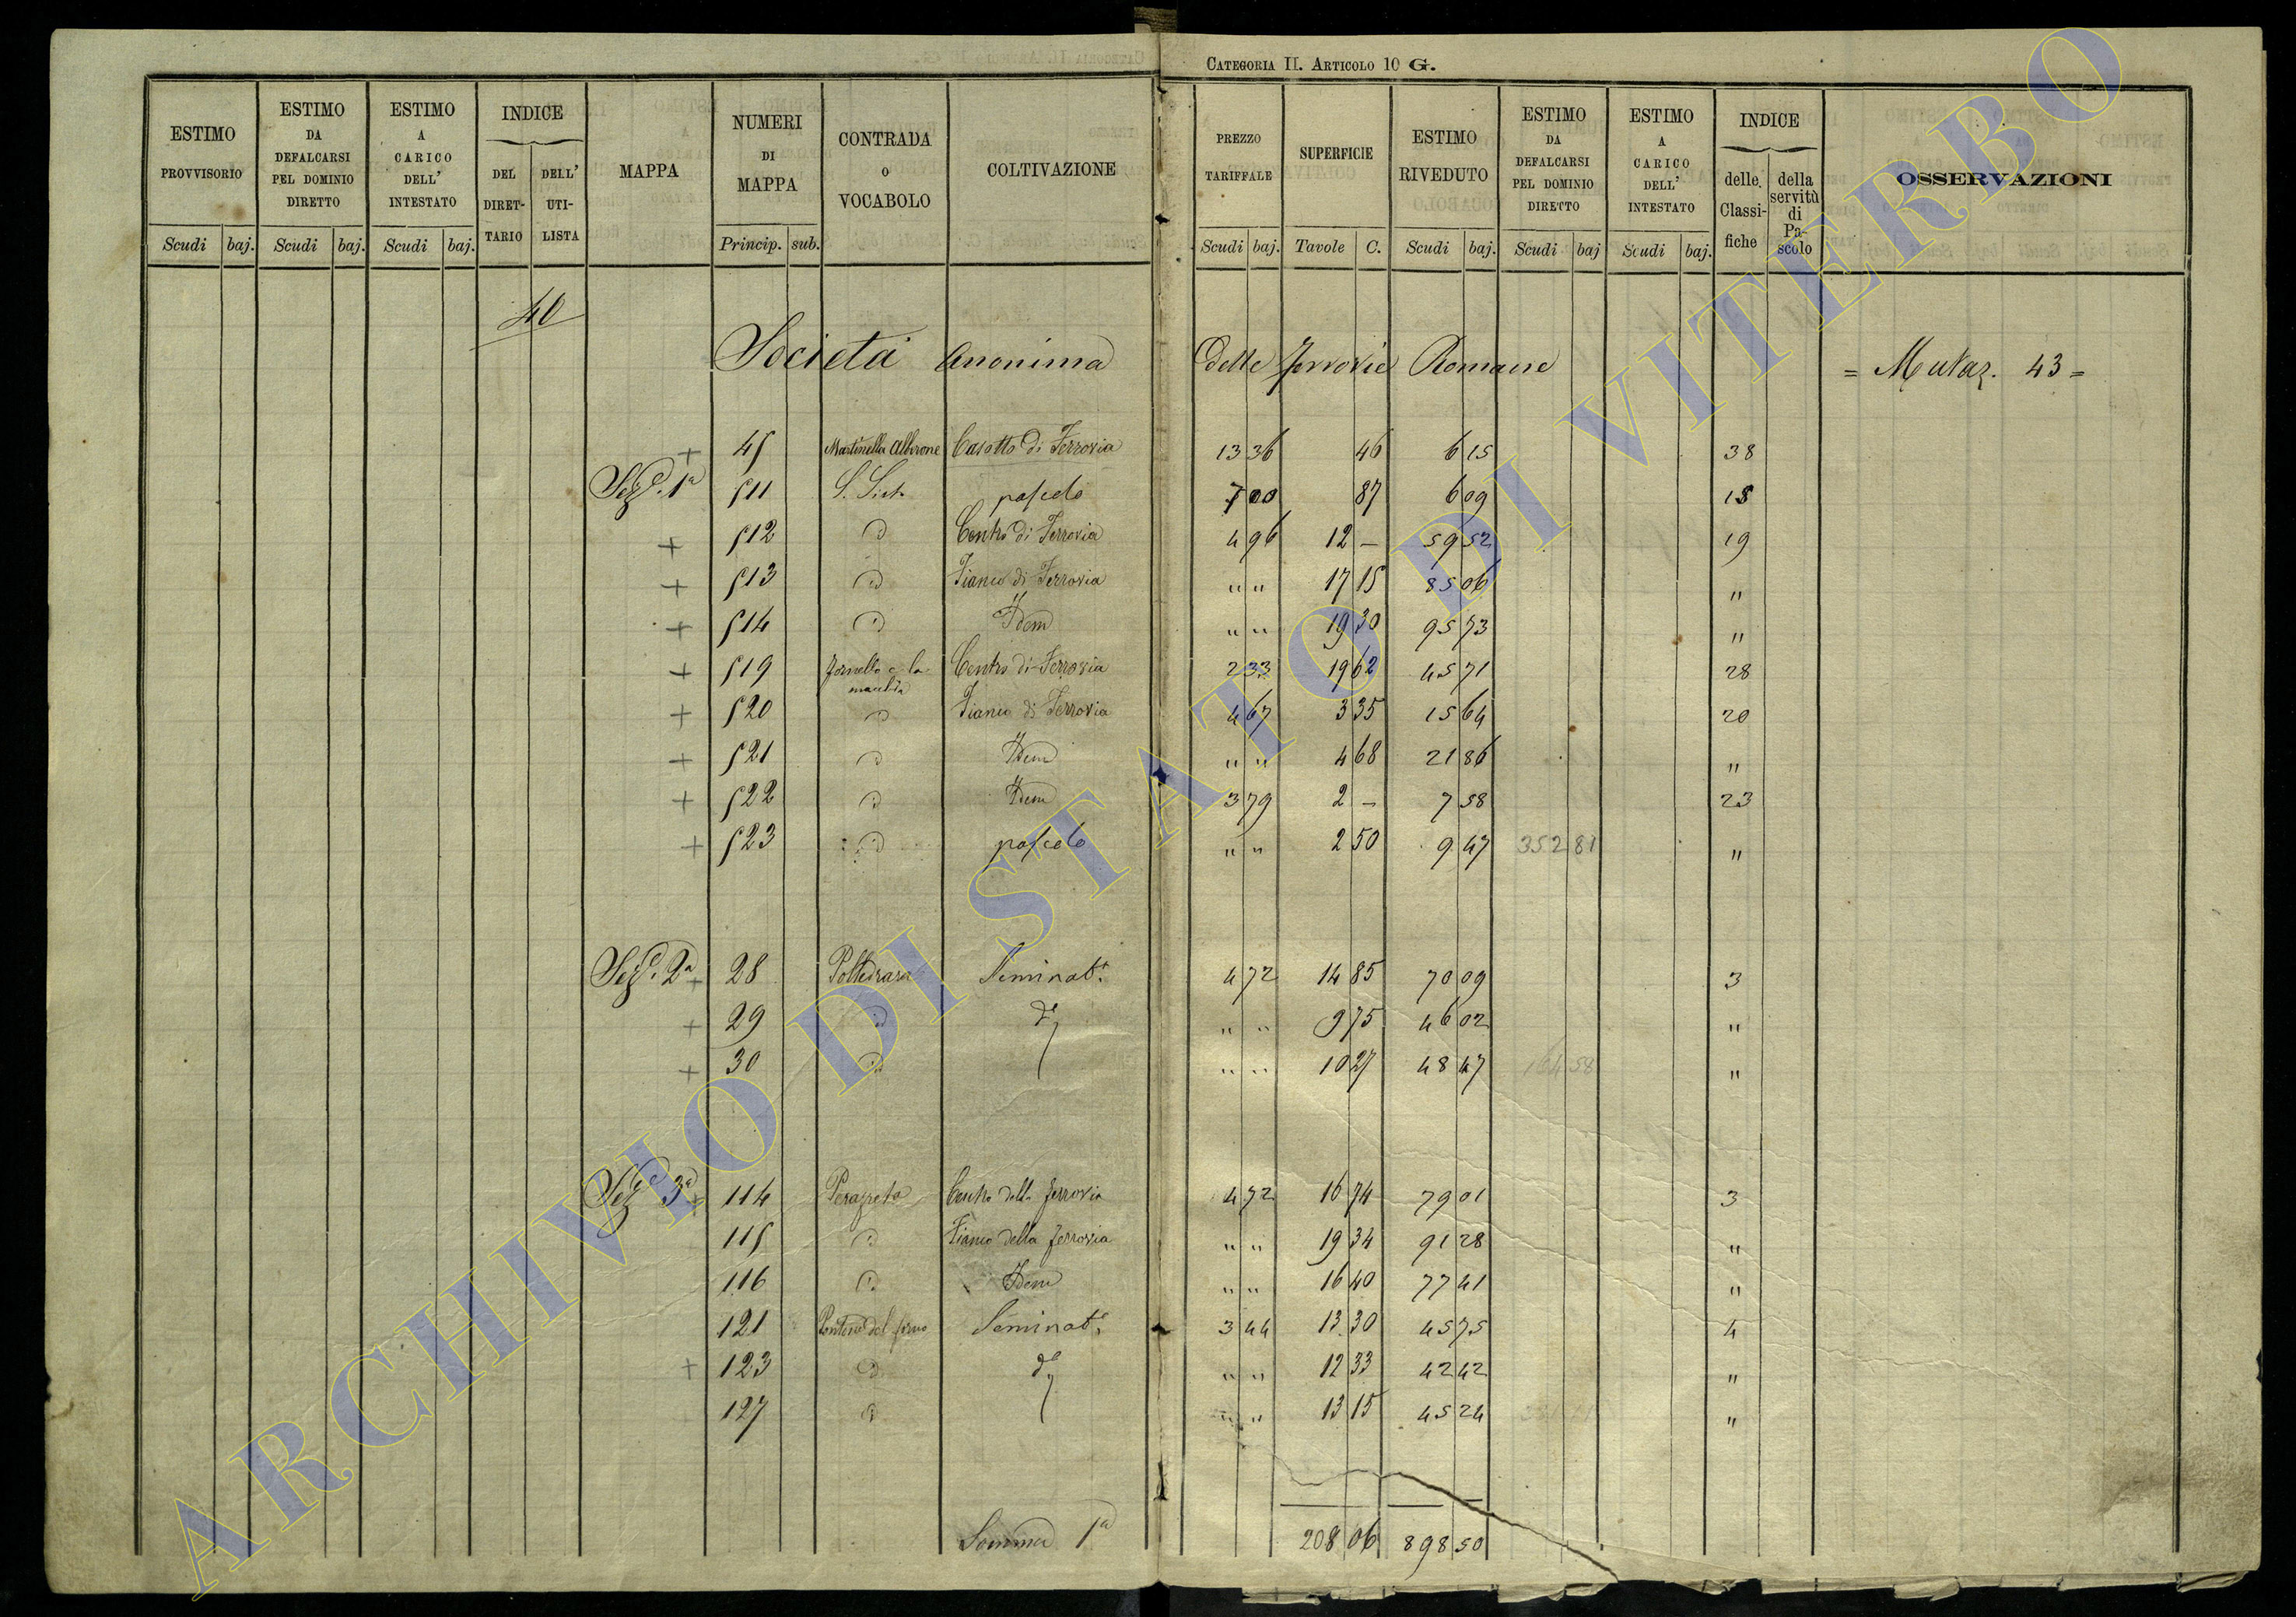 CATEGORIA II. ARTICOLO 10 G.
ESTIMO PROVVISORIO Scudi baj. | ESTIMO DA DEFALCARSI PEL DOMINIO DIRETTO Scudi baj. | ESTIMO A CARICO DELL' INTESTATO Scudi baj. | INDICE DEL DIRET-TARIO DELL' UTI-LISTA | MAPPA | NUMERI DI MAPPA Princip. sub. | CONTRADA o VOCABOLO | COLTIVAZIONE | PREZZO TARIFFALE Scudi baj. | SUPERFICIE Tavole C. | ESTIMO RIVEDUTO Scudi baj. | ESTIMO DA DEFALCARSI PEL DOMINIO DIRETTO Scudi baj | ESTIMO A CARICO DELL' INTESTATO Scudi baj. | INDICE delle Classi-fiche della servitù di Pa-scolo | OSSERVAZIONI
40
Società Anonima Delle Ferrovie Romane = Mutaz. 43 =
+ 45 Martinella Alberone Casotto di Ferrovia 13 36 46 6 15 38
Sez.e 1a 511 S. Sisto pascolo 7 00 87 6 09 18
+ 512 id Centro di Ferrovia 4 96 12 – 59 52 19
+ 513 id Fianco di Ferrovia " " 17 15 85 06 "
+ 514 id Idem " " 19 30 95 73 "
+ 519 Fornello e la macchia Centro di Ferrovia 2 33 19 62 45 71 28
+ 520 id Fianco di Ferrovia 4 67 3 35 15 64 20
+ 521 id Idem " " 4 68 21 86 "
+ 522 id Idem 3 79 2 – 7 58 23
+ 523 id pascolo " " 2 50 9 47 352 81 "
Sez.e 2a + 28 Polledrara Seminat.o 4 72 14 85 70 09 3
+ 29 id do " " 9 75 46 02 "
+ 30 id " " 10 27 48 47 164 58 "
Sez.e 3a + 114 Centro della ferrovia 4 72 16 74 79 01 3
115 id Fianco della ferrovia " " 19 34 91 28 "
116 id Idem " " 16 40 77 41 "
121 Seminat.o 3 44 13 30 45 75 4
+ 123 id do " " 12 33 42 42 "
127 id " " 13 15 45 24 "
Somma 1a 208 06 898 50
ARCHIVIO DI STATO DI VITERBO